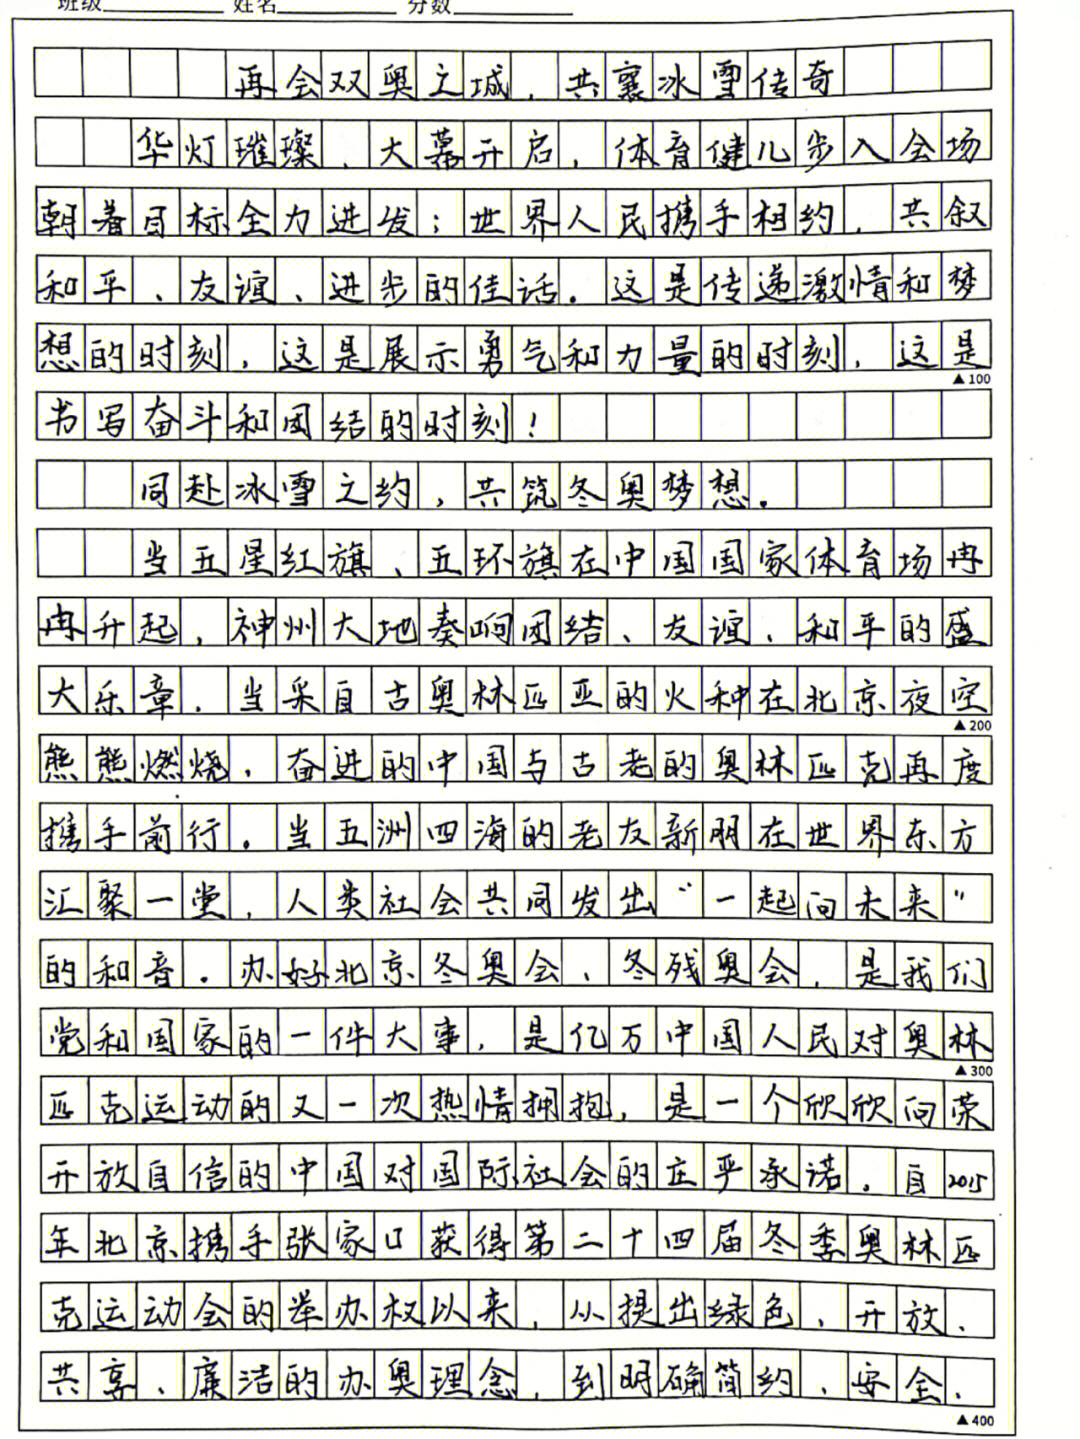 班级 姓名 分数
再会双奥之城，共襄冰雪传奇
华灯璀璨，大幕开启，体育健儿步入会场
朝着目标全力进发；世界人民携手相约，共叙
和平、友谊、进步的佳话。这是传递激情和梦
想的时刻，这是展示勇气和力量的时刻，这是
▲100
书写奋斗和团结的时刻！
同赴冰雪之约，共筑冬奥梦想。
当五星红旗、五环旗在中国国家体育场冉
冉升起，神州大地奏响团结、友谊、和平的盛
大乐章．当采自古奥林匹亚的火种在北京夜空
▲200
熊熊燃烧，奋进的中国与古老的奥林匹克再度
携手前行。当五洲四海的老友新朋在世界东方
汇聚一堂，人类社会共同发出“一起向未来”
的和音。办好北京冬奥会、冬残奥会，是我们
党和国家的一件大事，是亿万中国人民对奥林
▲300
匹克运动的又一次热情拥抱，是一个欣欣向荣
开放自信的中国对国际社会的庄严承诺。自2015
年北京携手张家口获得第二十四届冬季奥林匹
克运动会的举办权以来，从提出绿色、开放、
共享、廉洁的办奥理念，到明确简约、安全、
▲400